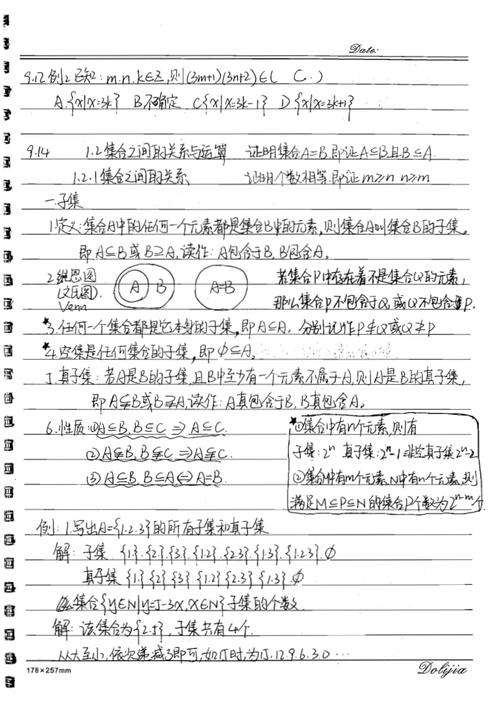 Date:
9.12 例2 已知: m.n.k∈Z, 则(3m+1)(3n+2)∈( C )
A.{x|x=3k} B不确定 C{x|x=3k-1} D{x|x=3k+1}
9.14 1.2集合之间的关系与运算 证明集合A=B 即证A⊆B且B⊆A.
1.2.1集合之间的关系 证明个数相等,即证m≥n n≥m
一.子集
1定义:集合A中的任何一个元素都是集合B中的元素,则集合A叫集合B的子集,
即A⊆B或B⊇A.读作:A包含于B.B包含A.
2.维恩图 A B A=B 若集合P中存在着不是集合Q的元素,
(文氏图). 那么集合P不包含于Q或Q不包含P.
Venn
*3.任何一个集合都是它本身的子集,即A⊆A. 分别记作P⊈Q或Q⊉P
*4.空集是任何集合的子集,即∅⊆A.
5.真子集:若A是B的子集且B中至少有一个元素不属于A,则A是B的真子集,
即A⊊B或B⊋A.读作:A真包含于B.B真包含A.
6.性质:①A⊆B,B⊆C⇒A⊆C. *①集合中有n个元素,则有
②A⊊B,B⊊C⇒A⊊C. 子集:2ⁿ 真子集:2ⁿ-1 非空真子集2ⁿ-2
③A⊆B,B⊆A⇔A=B. ②集合M中有m个元素,N中有n个元素,则
满足M⊆P⊆N的集合P个数为2ⁿ⁻ᵐ个
例:1.写出A={1.2.3}的所有子集和真子集
解:子集 {1}.{2}{3}.{1.2}{2.3}{1.3}.{1.2.3}.∅
真子集 {1}{2}{3}{1.2}{2.3}{1.3}.∅
集合{y∈N|y=5-3x,x∈N}子集的个数
解:该集合为{2.5},子集共有4个.
从大至小,依次递减3即可,如15时,为15.12.9.6.3.0…
178×257mm
Dolijia